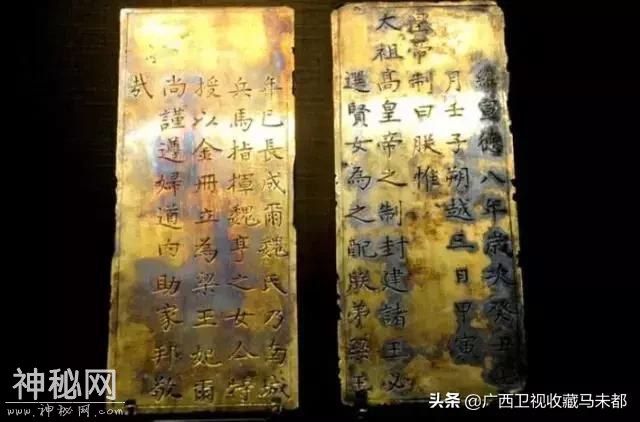 維宣德八年歲次癸丑
月壬子朔越三日甲寅
皇帝制曰朕惟
太祖高皇帝之制封建諸王必
選賢女為之配朕弟梁王
年已長成爾魏氏乃南城
兵馬指揮魏亨之女今特
授以金冊立為梁王妃爾
尚謹遵婦道內助家邦敬
哉
神秘网
www.神秘网.com
头条 @广西卫视收藏马未都